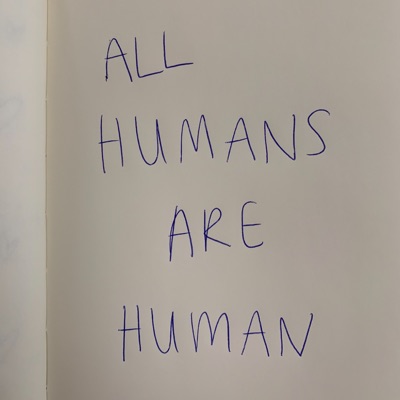 ALL
HUMANS
ARE
HUMAN